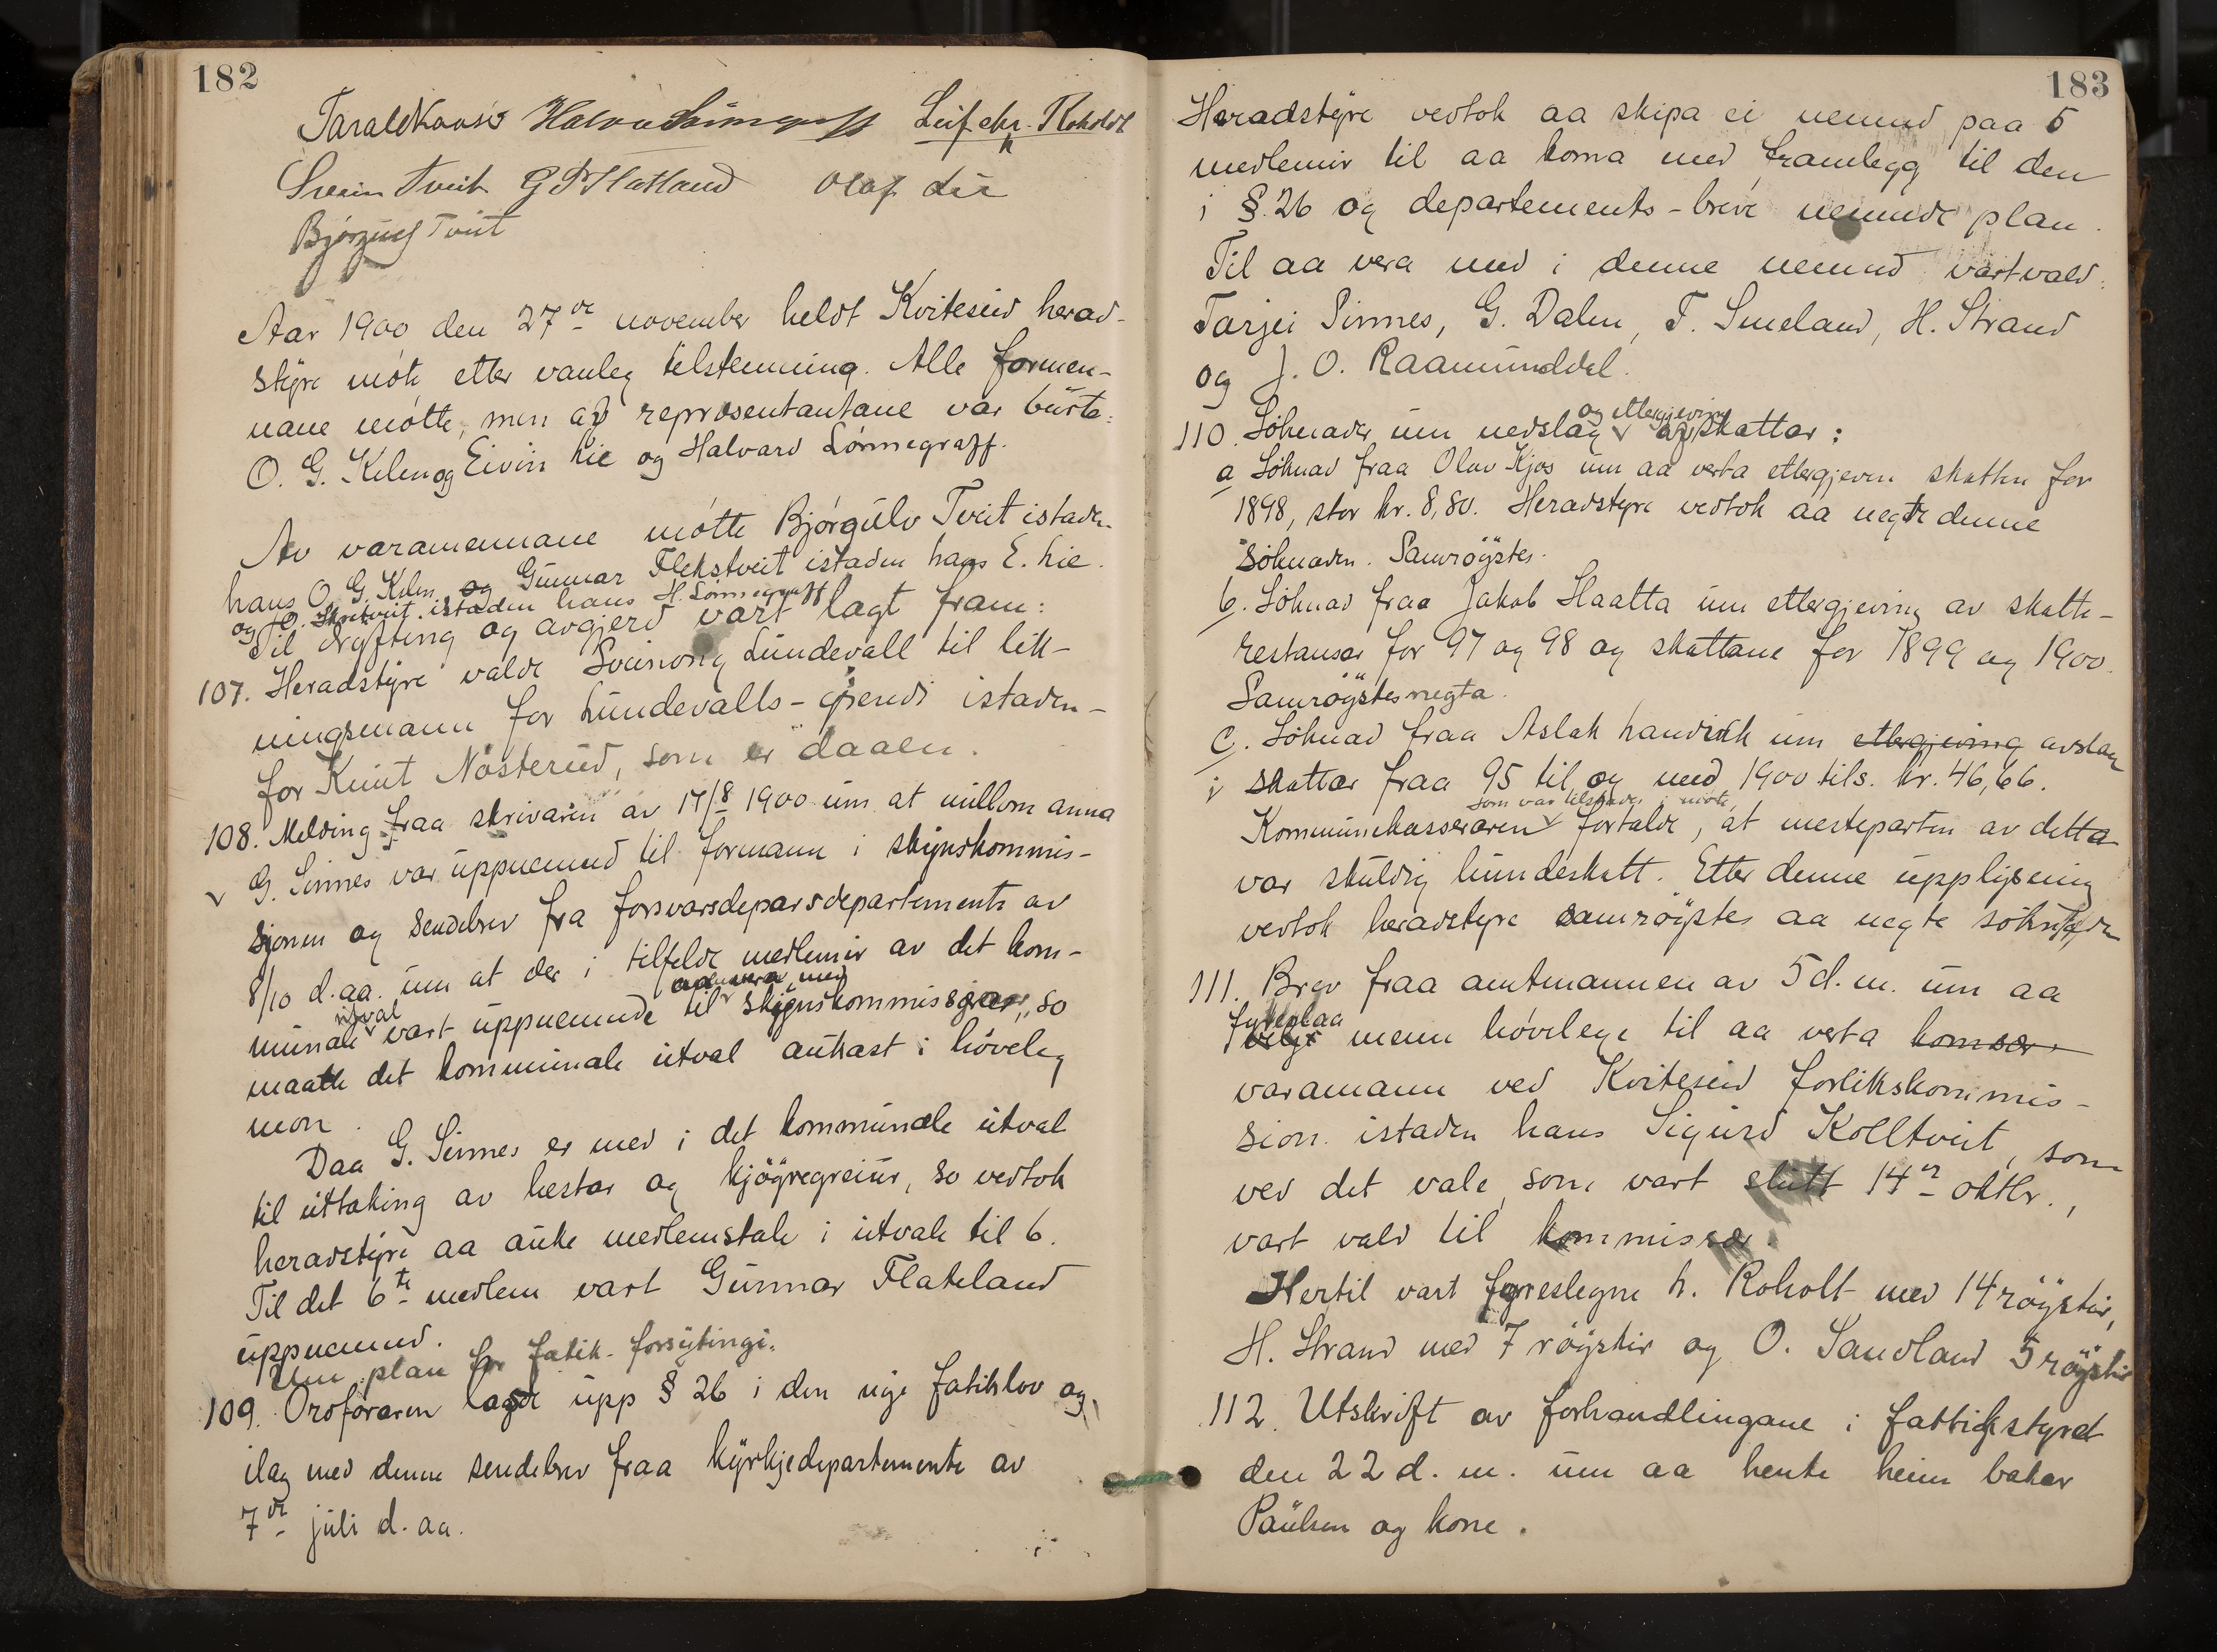 182
Taraldkaase Halvor Lönnegraff Leif chr. Roholdt
Svein Tveit G Flatland Olaf
Bjørgulf Tveit
Aar 1900 den 27de november heldt Kviteseid herad-
styre møte etter vanleg telstemning. Alle formen-
nane møtte, men av representantane var burte:
O. G. Kilen og Eivin Lie og Halvard Lönnegraff.
Av varamennane møtte Bjørgulv Tveit istaden
hans O. G. Kilen, og Gunnar Flekstveit istaden hans E. Lie.
og O. Skretveit istaden hans H. Lönnegraff
Til drøfting og avgjerd vart lagt fram:
107. Heradstyre valde Sveinong Lundevall til lik-
ningsmann for Lundevalls-grendi istaden-
for Knut Nösterud, som er daaen.
108. Melding fraa skrivaren av 17/8 1900 um at millom anna
G. Sinnes var uppnemnd til formann i skjynskommis-
sjonen og sendebrev fra forsvarsdeparsdepartemente av
8/10 d. aa. um at der i tilfelde medlemir av det kom-
munale utval vart uppnemnde til aa vera med skjynskommissærar, so
maatte det kommunale utval aukast i høveleg
mon.
Daa G. Sinnes er med i det kommunale utval
til uttaking av hestar og kjöyregreiur, so vedtok
heradstyre aa auke medlemstale i utvale til 6.
Til det 6te medlem vart Gunnar Flateland
uppnemnd.
Um plan for fatik-forsytingi.
109. Ordføraren lagde upp § 26 i den nye fatiklov og,
ilag med denne sendebrev fraa kyrkjedepartemente av
7de juli d. aa.
183
Heradstyre vedtok aa skipa ei nemnd paa 5
medlemir til aa koma med framlegg til den
i § 26 og departements-breve nemnde plan.
Til aa vera med i denne nemnd vart vald:
Tarjei Sinnes, G. Dalen, T. Smeland, H. Strand
og J. O. Raamunddal.
110. Söknader um nedslag og ettergjeving av skattar:
a Söknad fraa Olav Kjos um aa verta ettergjeven skatten for
1898, stor kr. 8,80. Heradstyre vedtok aa negte denne
söknaden. Samröystes.
b. Söknad fraa Jakob Haatta um ettergjeving av skatte-
restansar for 97 og 98 og skattane for 1899 og 1900.
Samröystes negta.
c. Söknad fraa Aslak Landsverk um ettergjeving avslag
i skattar fraa 95 til og med 1900 tils. kr. 46,66.
Kommunekasseraren som var tilstades i møte, fortalde, at mesteparten av detta
var skuldig hundeskatt. Etter denne upplysning
vedtok heradstyre samröystes aa negte söknaden
111. Brev fraa amtmannen av 5 d. m. um aa
fyreslaa velge menn høvelege til aa verta komsær
varamann ved Kviteseid forlikskommis-
sion istaden hans Sigurd Kolltveit, som
ved det vale, som vart slutt 14de oktbr.,
vart vald til kommissær.
Hertil vart fyreslegne L. Roholt med 14 röystir,
H. Strand med 7 röystir og O. Sandland 5 röystir
112. Utskrift av forhandlingane i fattigstyret
den 22 d. m. um aa hente heim bakar
Paulsen og kone.